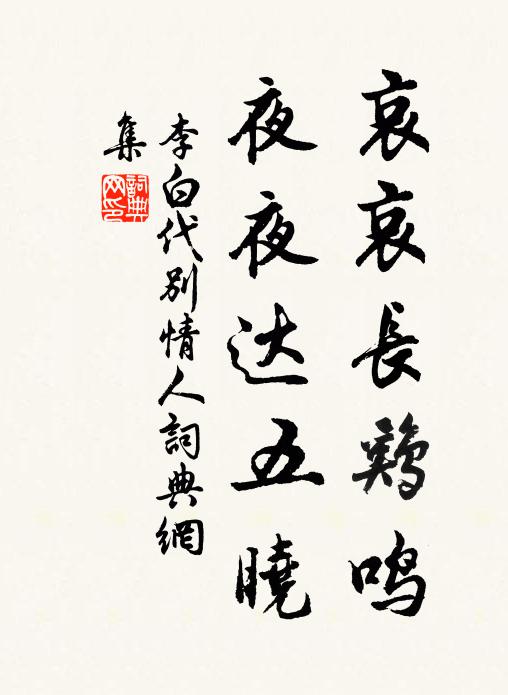 哀哀長鷄鸣
夜夜达五曉
李白代别情人詞典網
集
詞典网印